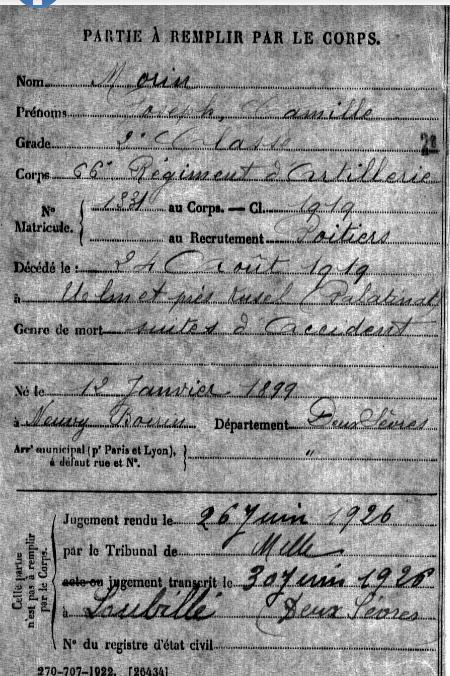 PARTIE À REMPLIR PAR LE CORPS.
Nom Morin
Prénoms Joseph, Camille
Grade 2e Classe
Corps 66e Régiment d'Artillerie
N° Matricule. 1331 au Corps. — Cl. 1919
au Recrutement Poitiers
Décédé le : 24 Août 1919
à et près Kusel (Palatinat
Genre de mort suites d'accident
Né le 12 Janvier 1899
à Neuvy Bouin Département Deux Sèvres
Arrt municipal (pr Paris et Lyon), à défaut rue et N°. "
Cette partie n'est pas à remplir par le Corps.
Jugement rendu le 26 Juin 1926
par le Tribunal de Melle
acte ou jugement transcrit le 30 Juin 1926
à Loubillé (Deux Sèvres
N° du registre d'état civil
270-707-1922. [26434]